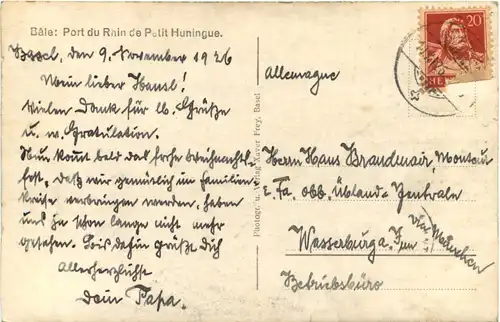 Bâle: Port du Rhin de Petit Huningue.
Basel, den 9. November 1926
Mein lieber Hansl!
Vielen Dank für lb. Grüße
u. w. Gratulation.
Nun kommt bald das frohe Weihnachts-
fest, daß wir gemütlich im Familien-
kreise verbringen werden, haben
uns ja schon lange nicht mehr
gesehen. Bis dahin grüßt Dich
Allerherzlichst
Dein Papa.
Photogr. u. Verlag Xaver Frey, Basel
20
Allemagne
Herrn Hans Brandmair, Monteur
i. Fa. obb. Übland-Zentrale
Wasserburg a. Inn
via München
Betriebsbüro